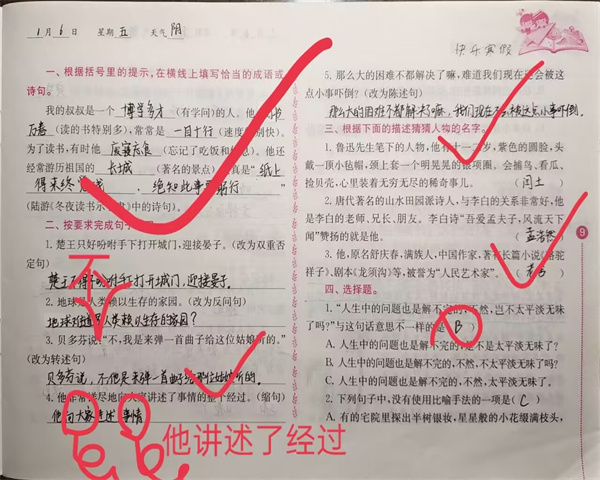 1月6日 星期五 天气阴
快乐寒假
一、根据括号里的提示,在横线上填写恰当的成语或
诗句。
我的叔叔是一个 博学多才 (有学问)的人。他
万卷 (读的书特别多),常常是 一目十行 (速度特别快)。
为了读书,有时他 废寝忘食 (忘记了吃饭和
经常游历祖国的 长城 (著名的景点)真是“纸上
得来终 ,绝知此事要躬行 ”
(陆游《冬夜读书示子聿》中的诗句)。
二、按要求完成句子
1. 楚王只好吩咐手下打开城门,迎接晏子。(改为双重否
定句)
楚王 打开城门,迎接晏子。
2. 地球 人类赖以生存的家园。(改为反问句)
地球 人类赖以生存的家园?
否
3. 贝多芬说:“不,我是来弹一首曲子给这位姑娘听的。”
(改为转述句)
贝多芬说,不,他是来弹一首曲 位姑娘听的。
4. 他非常详尽地向大家讲述了事情的整个经过。(缩句)
他向大家 事情
他讲述了经过
5. 那么大的困难不都解决了嘛,难道我们现在还会被这
点小事吓倒?(改为陈述句)
那么大的困难不都解决了嘛,我们现在不会被这点小事吓倒。
三、根据下面的描述猜猜人物的名字。
1. 鲁迅先生笔下的人物,他有十一二岁,紫色的圆脸,头
戴一顶小毡帽,颈上套一个明晃晃的银项圈。会捕鸟、看瓜、
捡贝壳,心里装着无穷无尽的稀奇事儿。 (闰土)
2. 唐代著名的山水田园派诗人,与李白的关系非常好,他
是李白的老师、兄长、朋友。李白诗“吾爱孟夫子,风流天下
闻”赞扬的就是他。 (孟浩然)
3. 他,原名舒庆春,满族人,中国作家,著有长篇小说《骆驼
祥子》、剧本《龙须沟》等,被誉为“人民艺术家”。 (老舍)
四、选择题。
1. “人生中的问题也是解不完的,不然,岂不太平淡无味
了吗?”与这句话意思不一样的是(B)
A. 人生中的问题也是解不完的,不是太平淡无味了?
B. 人生中的问题也是解不完的,不然,不太平淡无味了吗?
C. 人生中的问题也是解不完的,不然,太平淡无味了。
2. 下列句子中,没有使用比喻手法的一项是(C)
A. 有的宅院里探出半树银妆,星星般的小花缀满枝头,
9